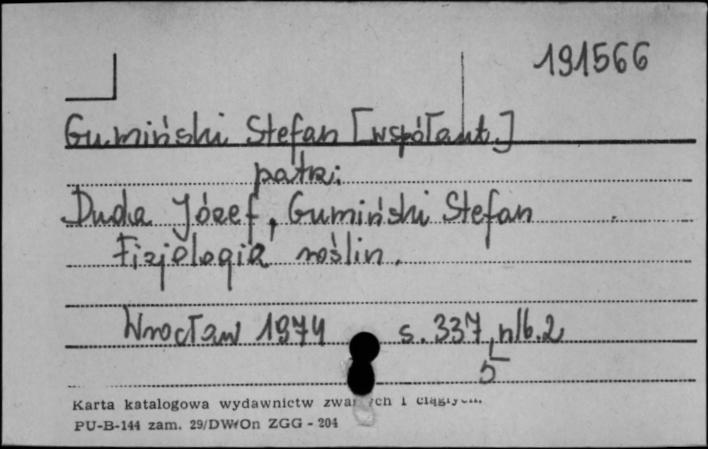 191566
Gumiński Stefan [współaut.]
patrz:
Duda Józef, Gumiński Stefan
Fizjologia roślin.
Wrocław 1974 s. 337, nlb. 2
5
Karta katalogowa wydawnictw i ciągłych.
PU-B-144 zam. 29/DWrOn ZGG - 204